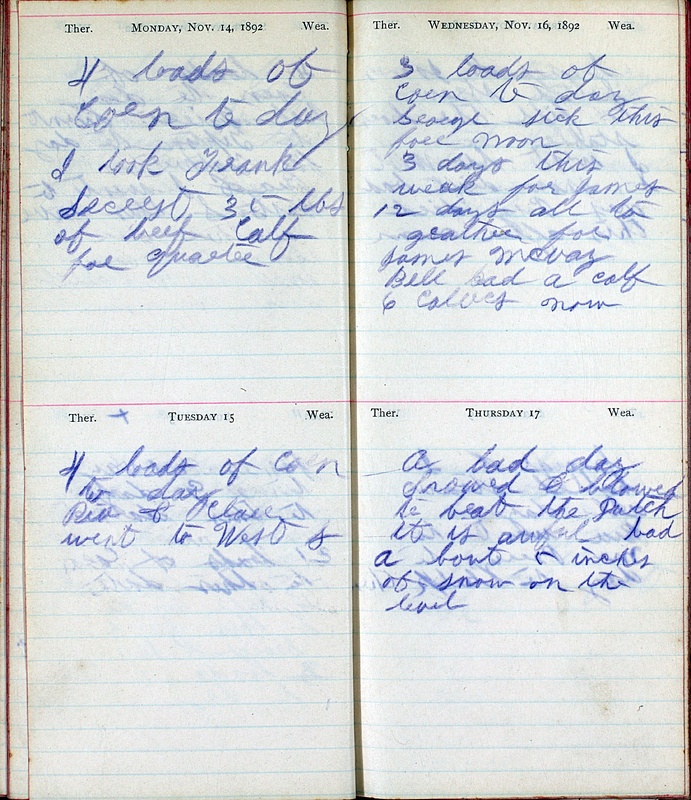 Ther. MONDAY, NOV. 14, 1892 Wea.
4 loads of
Corn to day
I took Frank
Secrest 35 lbs
of beef Calf
for quarter
Ther. TUESDAY 15 Wea.
4 loads of Corn
to day
& Clace
went to West s
Ther. WEDNESDAY, NOV. 16, 1892 Wea.
3 loads of
Corn to day
George sick this
fore noon
3 days this
weak for James
12 days all to
geather for
James McVay
Bell had a calf
6 Calves now
Ther. THURSDAY 17 Wea.
A bad day
snowed & blowed
to beat the Dutch
it is awful bad
a bout inches
of snow on the
level